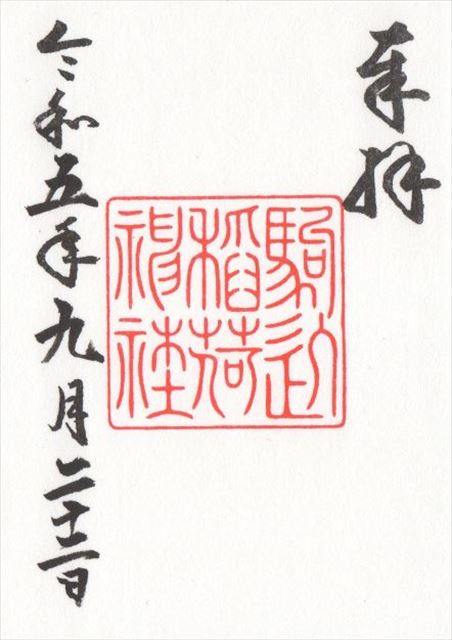 奉拝
駒込
稲荷
神社
令和五年九月二十二日